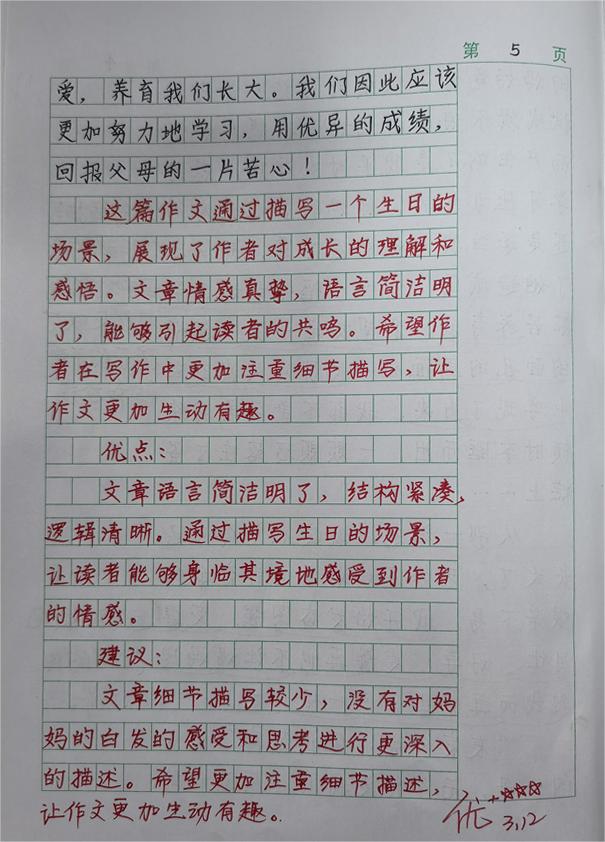 第 5 页
爱，养育我们长大。我们因此应该
更加努力地学习，用优异的成绩，
回报父母的一片苦心！
这篇作文通过描写一个生日的
场景，展现了作者对成长的理解和
感悟。文章情感真挚，语言简洁明
了，能够引起读者的共鸣。希望作
者在写作中更加注重细节描写，让
作文更加生动有趣。
优点：
文章语言简洁明了，结构紧凑，
逻辑清晰。通过描写生日的场景，
让读者能够身临其境地感受到作者
的情感。
建议：
文章细节描写较少，没有对妈
妈的白发的感受和思考进行更深入
的描述。希望更加注重细节描述，
让作文更加生动有趣。
优+☆☆☆☆
3.12